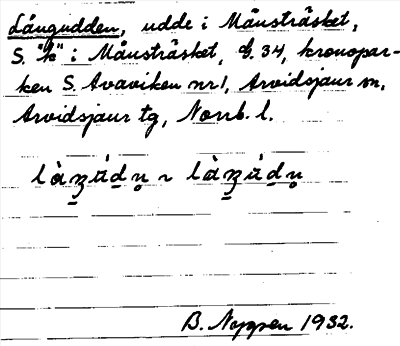 Långudden, udde i Mausträsket,
S. "k" i Mausträsket, G. 34, kronopar-
ken S. Avaviken nr 1, Arvidsjaur sn,
Arvidsjaur tg, Norrb. l.
B. Nyppen 1932.